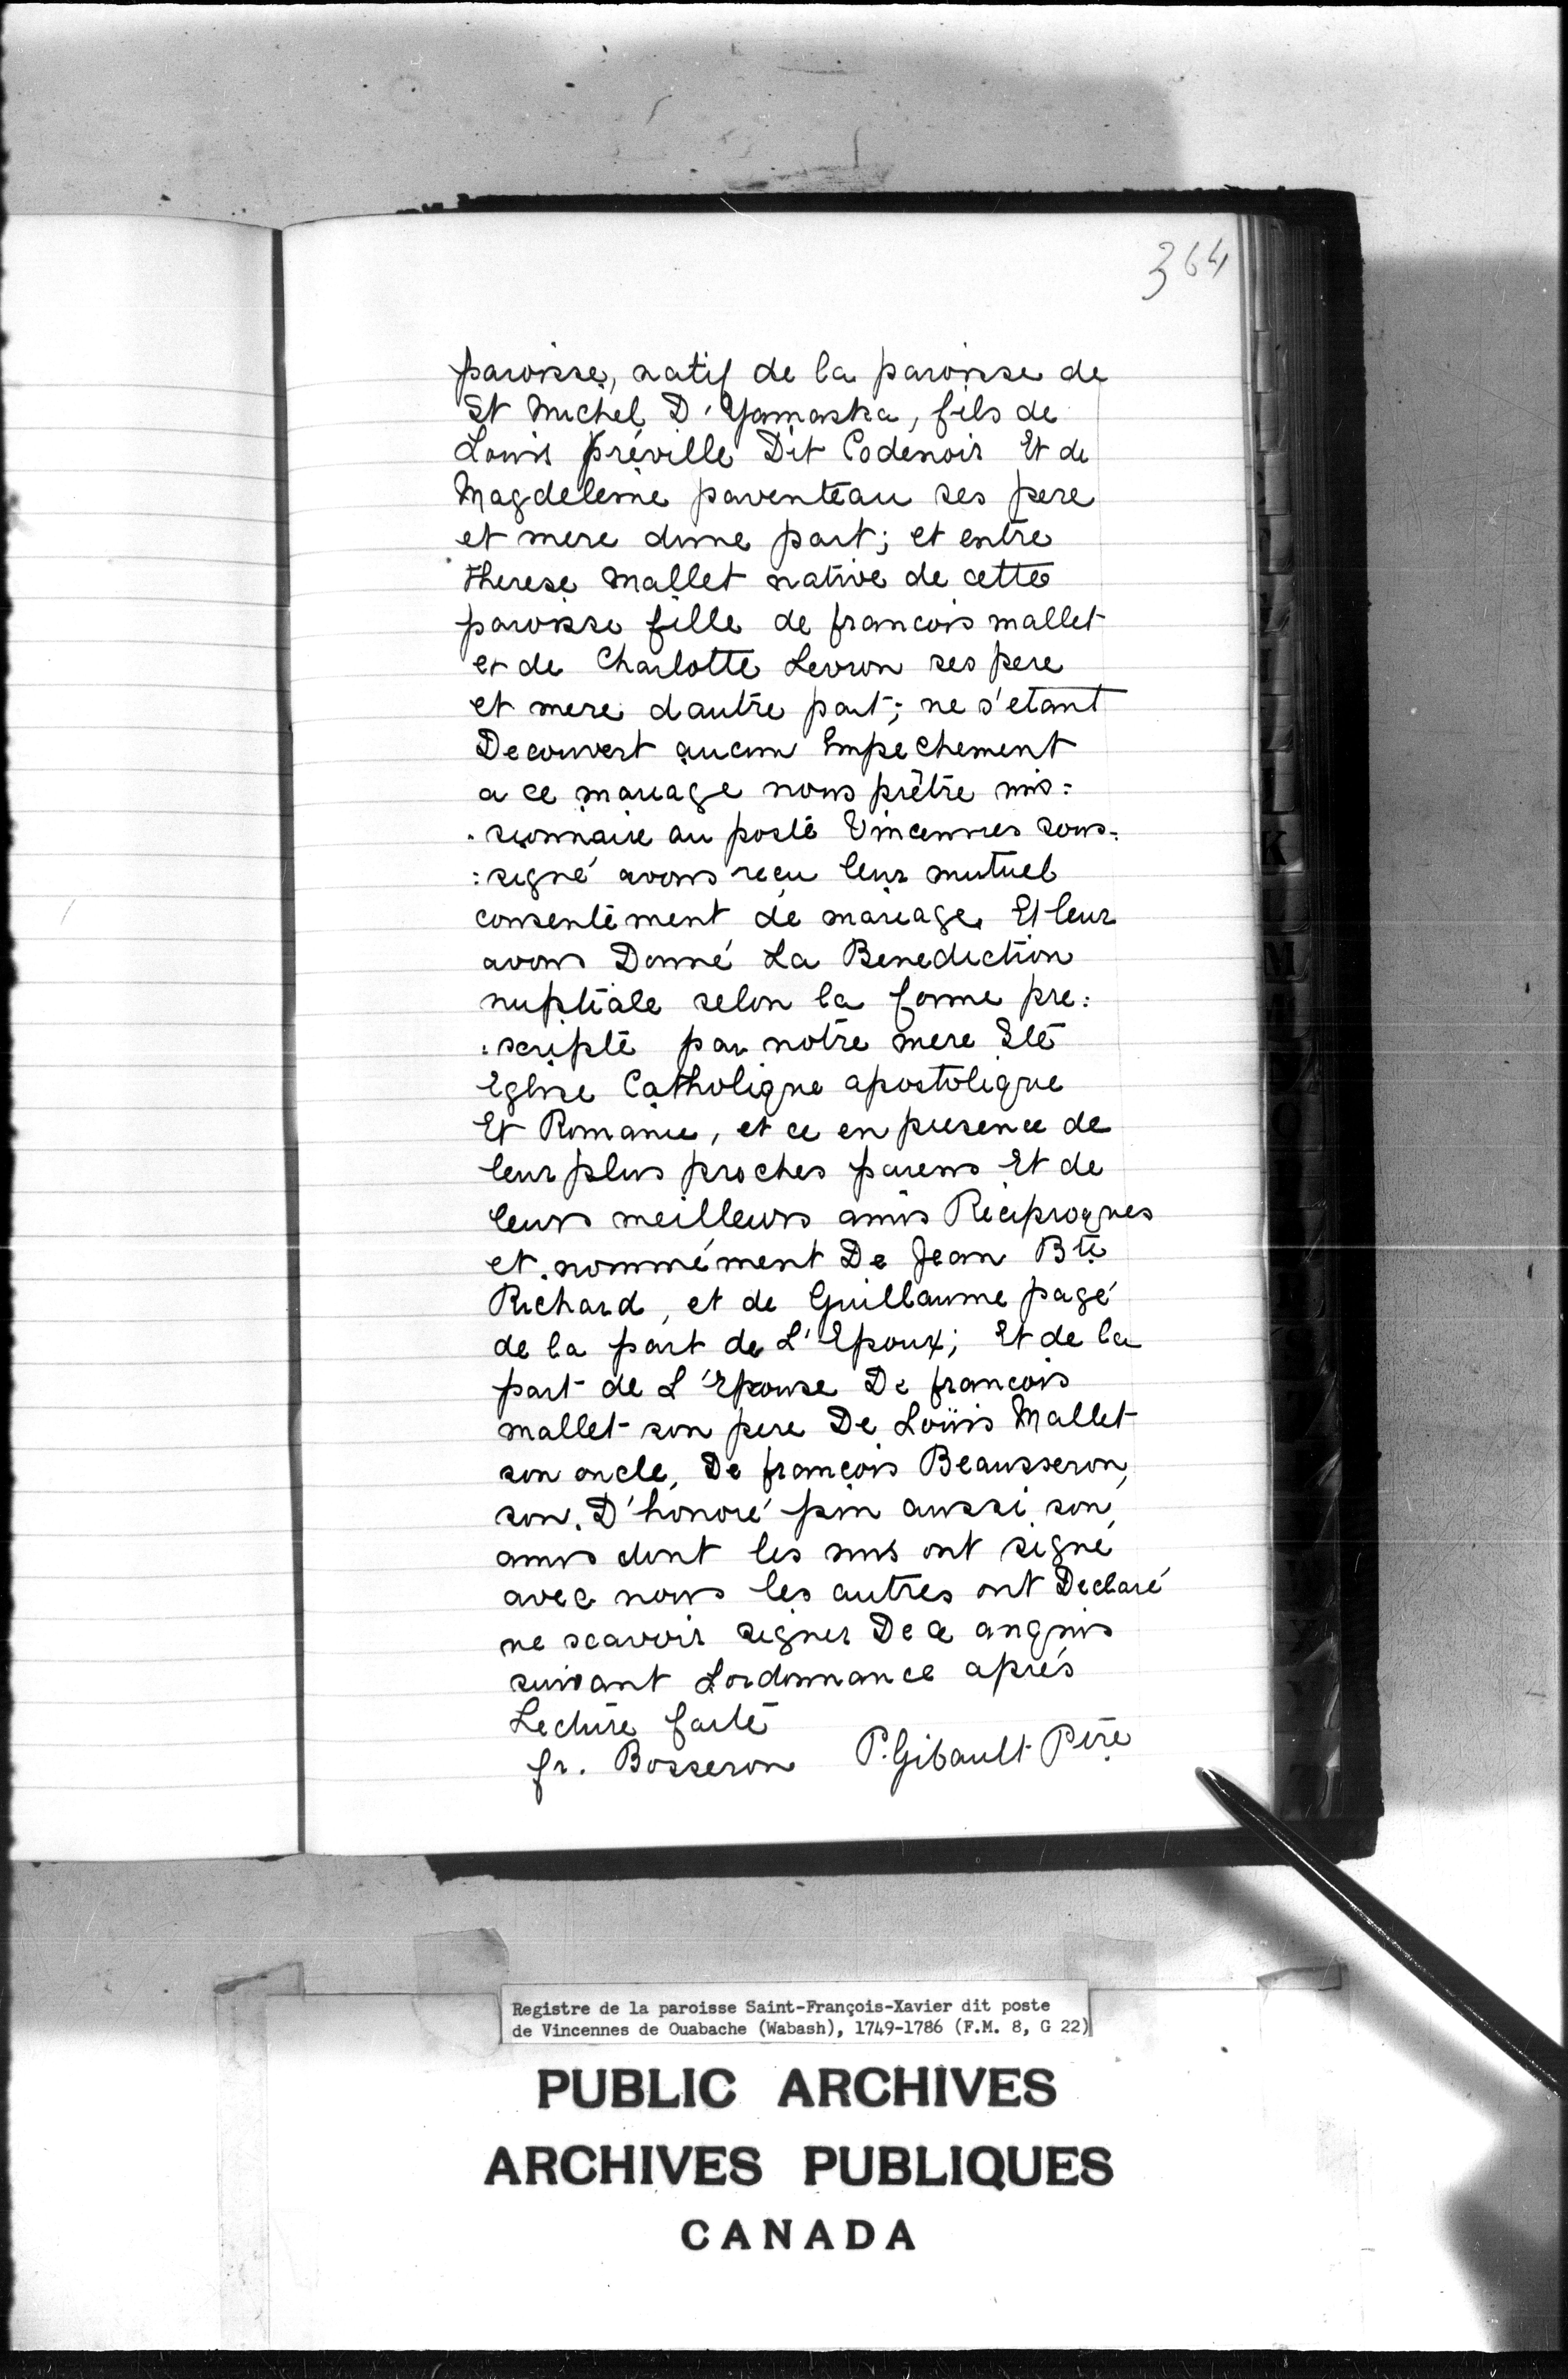 364
paroisse, natif de la paroisse de
St Michel D'Yamaska, fils de
Louis préville Dit Codenoir Et de
Magdeleine paventeau ses pere
et mere dune part; et entre
therese Mallet native de cette
paroisse fille de francois mallet
et de Charlotte Levron ses pere
et mere dautre part; ne s'etant
Decouvert aucun Empechement
a ce mariage nous prêtre mis=
=sionnaire au poste Vincennes sous=
=signé avons recu leur mutuel
consentement de mariage Et leur
avons Donné La Benediction
nuptiale selon la forme pre=
=scripte par notre mere Ste
Eglise Catholique apostolique
Et Romaine, et ce en presence de
leur plus proches parens Et de
leurs meilleurs amis Reciproques
et nommément De Jean Bte
Richard, et de Guillaume pagé
de la part de L'Epoux; Et de la
part de L'Epouse De francois
mallet son pere De Loüis Mallet
son oncle, De françois Beausseron,
son. D'honoré pin aussi son
amis dont les uns ont signé
avec nous les autres ont Declaré
ne scavoir signer De ce anquis
suivant Lordonnance aprés
Lecture faite
fr. Bosseron P. Gibault Ptre
Registre de la paroisse Saint-François-Xavier dit poste
de Vincennes de Ouabache (Wabash), 1749-1786 (F.M. 8, G 22)
PUBLIC ARCHIVES
ARCHIVES PUBLIQUES
CANADA
K
M